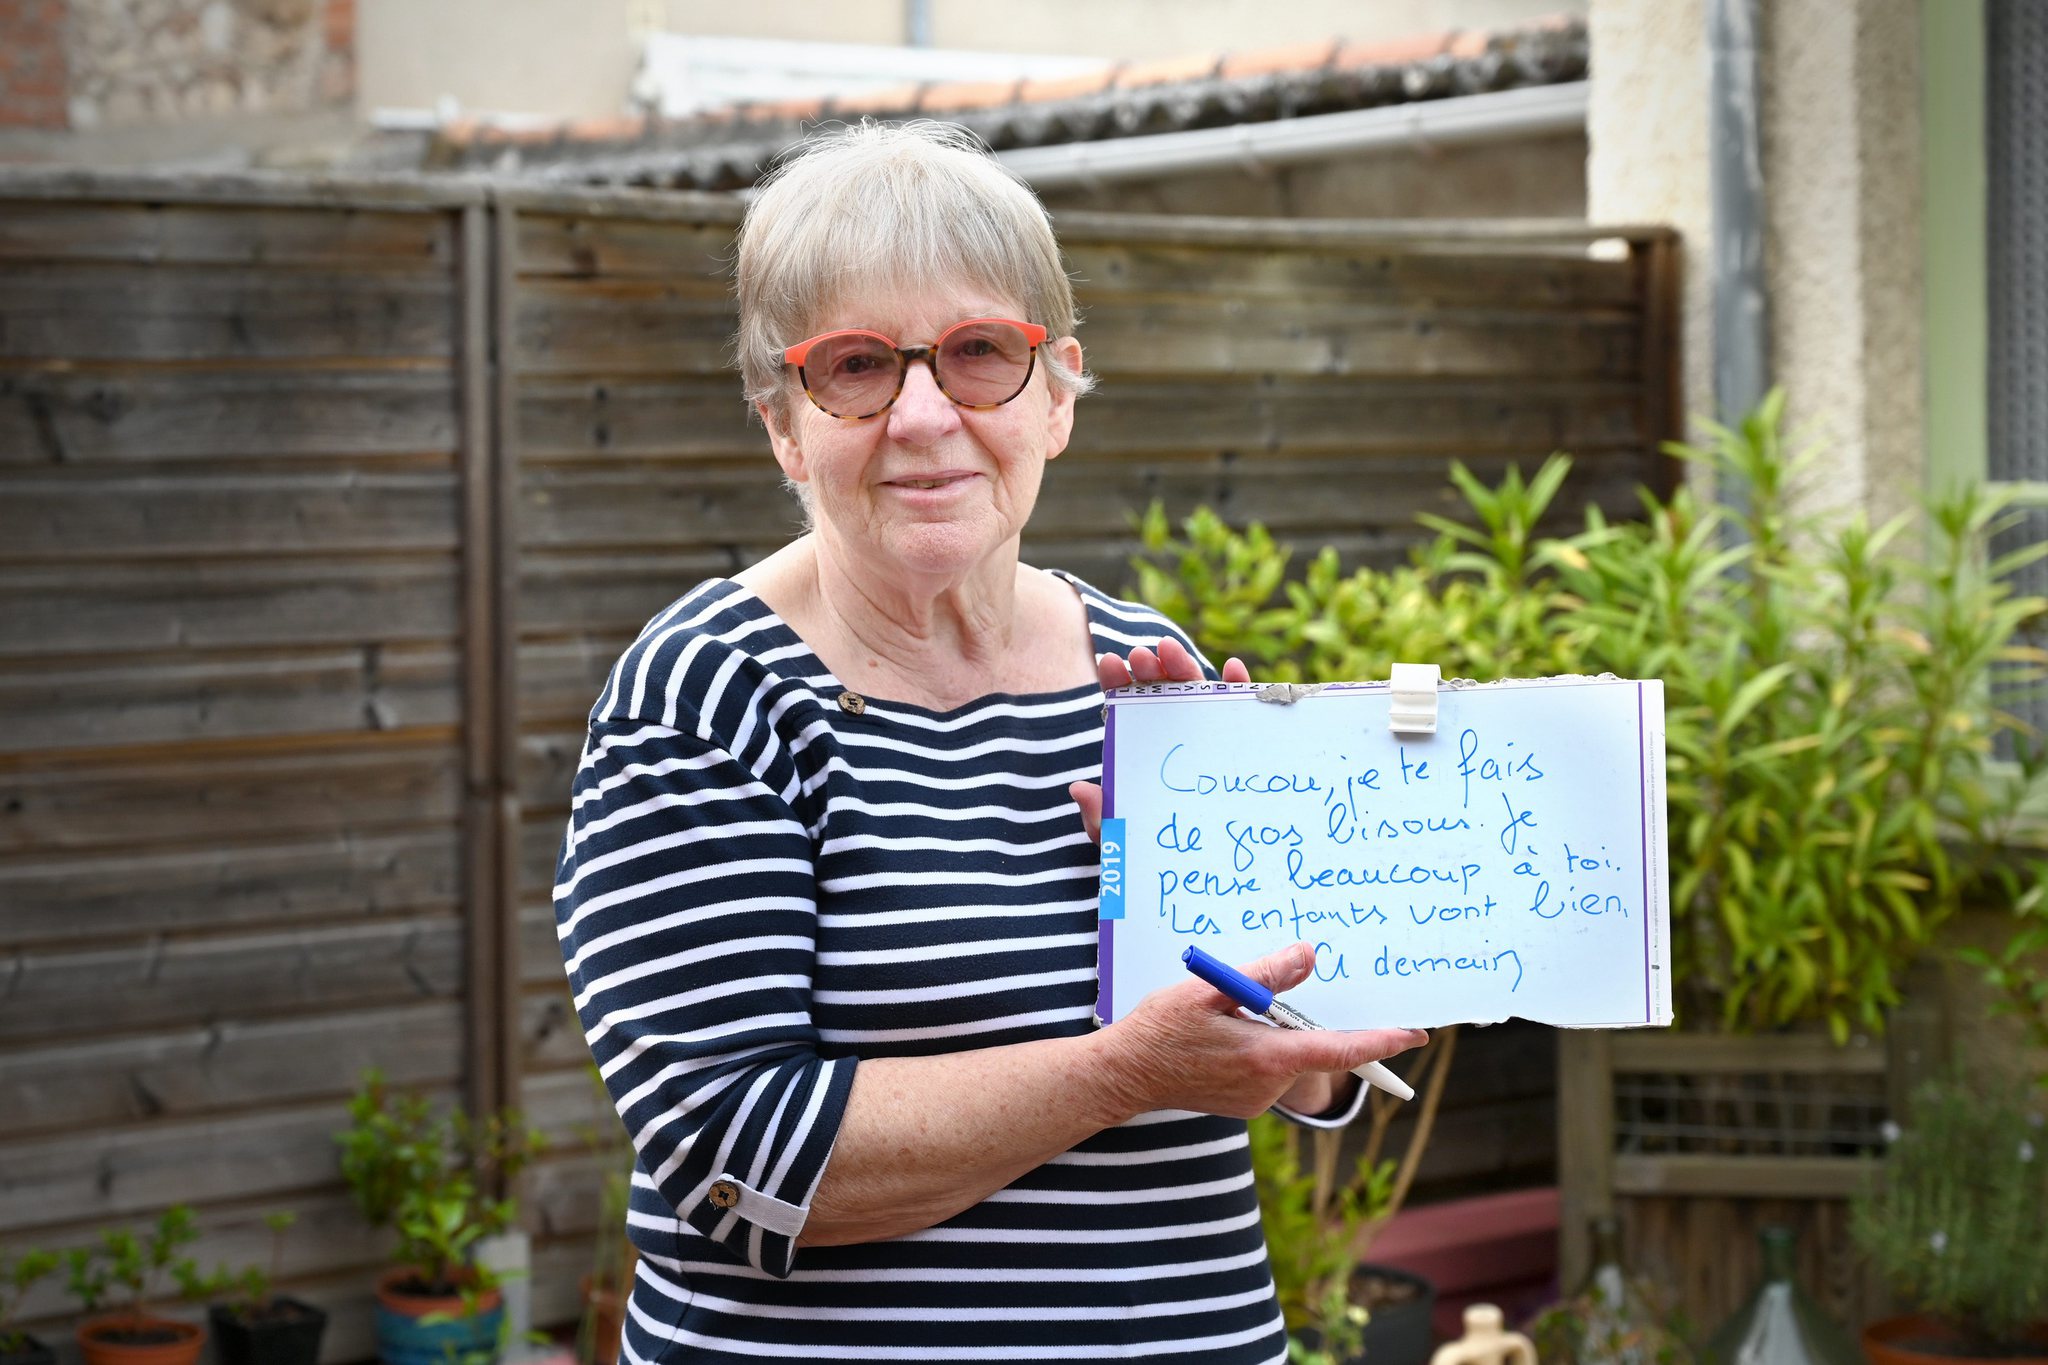 L M M J V S D L M
Coucou, je te fais
de gros bisous. Je
pense beaucoup à toi.
Les enfants vont bien.
A demain
2019